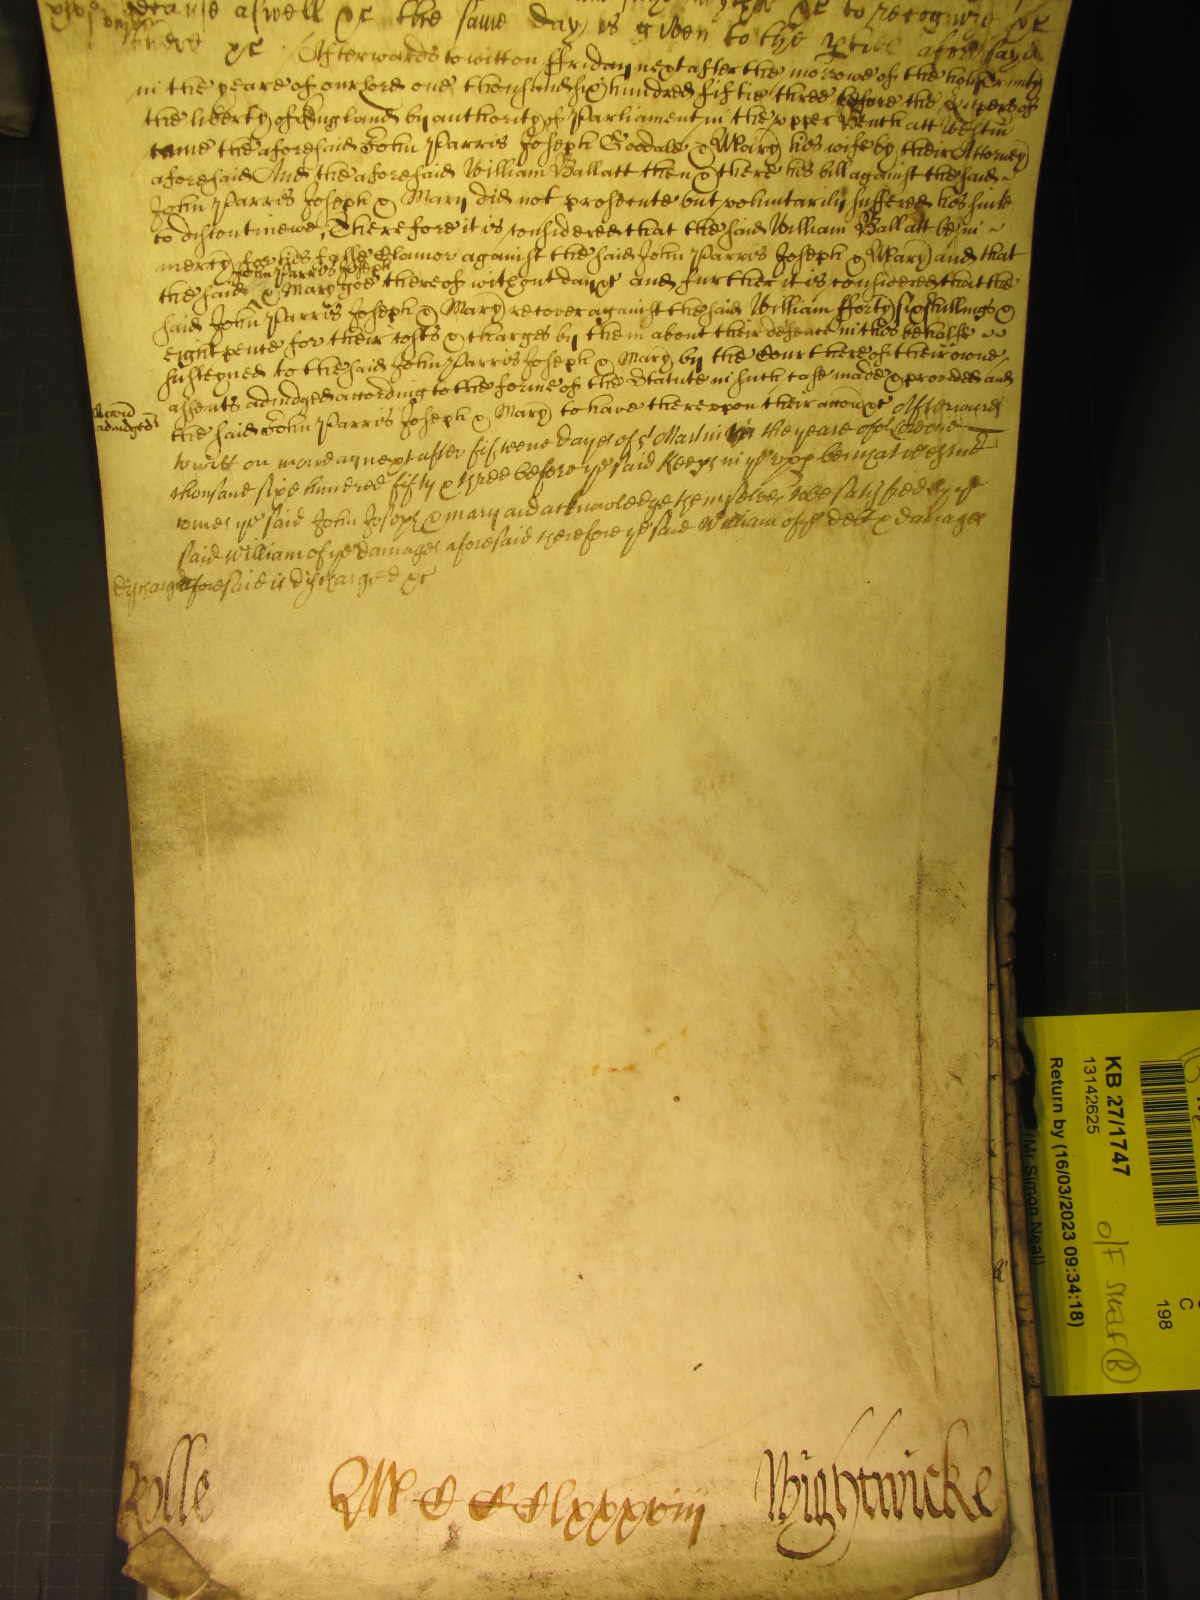 because aswell &c the same day is given to the pties aforesayd
&c Afterwards to witt on ffriday next after the morrowe of the holie Trinity
in the yeare of our lord one thousand six hundred fiftie three before the Keepers of
the liberty of England by authority of Parliament in the upper Bench att Westm
came the aforesaid John Parris Joseph Goodale & Mary his wife by their Attorney
aforesaid And the aforesaid William Ballatt then & there his bill against the said
John Parris Joseph & Mary did not prosecute but voluntarily suffered his suite
to discontinewe, Therefore it is considered that the said William Ballatt be in
mercy for his false Clamor against the said John Parris Joseph & Mary and that
John Parris Joseph
the said & Mary goe thereof without day &c and further it is considered that the
said John Parris Joseph & Mary recover against the said William fforty six shillings &
eight pence for their costs & charges by them about their defence in this behalfe
susteyned to the said John Parris Joseph & Mary by the Court here of their owne
assents adjudged according to the forme of the Statute in such case made & provided and
the said John Parris Joseph & Mary to have thereupon their &c Afterwards
adjudged
to witt on monday next after fifteene dayes of St Martin in the yeare of or Lord one
thousand sixe hundred fifty & three before ye said Keeps in ye upp bench at Westmr
comes ye said John Joseph & mary and acknowledge themselves to be satisfied by ye
said William of ye damages aforesaid therefore ye said William of ye debt & damages
discharged
aforesaid is discharged &c
Rolle
Wightwicke
KB 27/1747
13142625
Return by (16/03/2023 09:34:18)
(Mr Simon Neal)
C
198